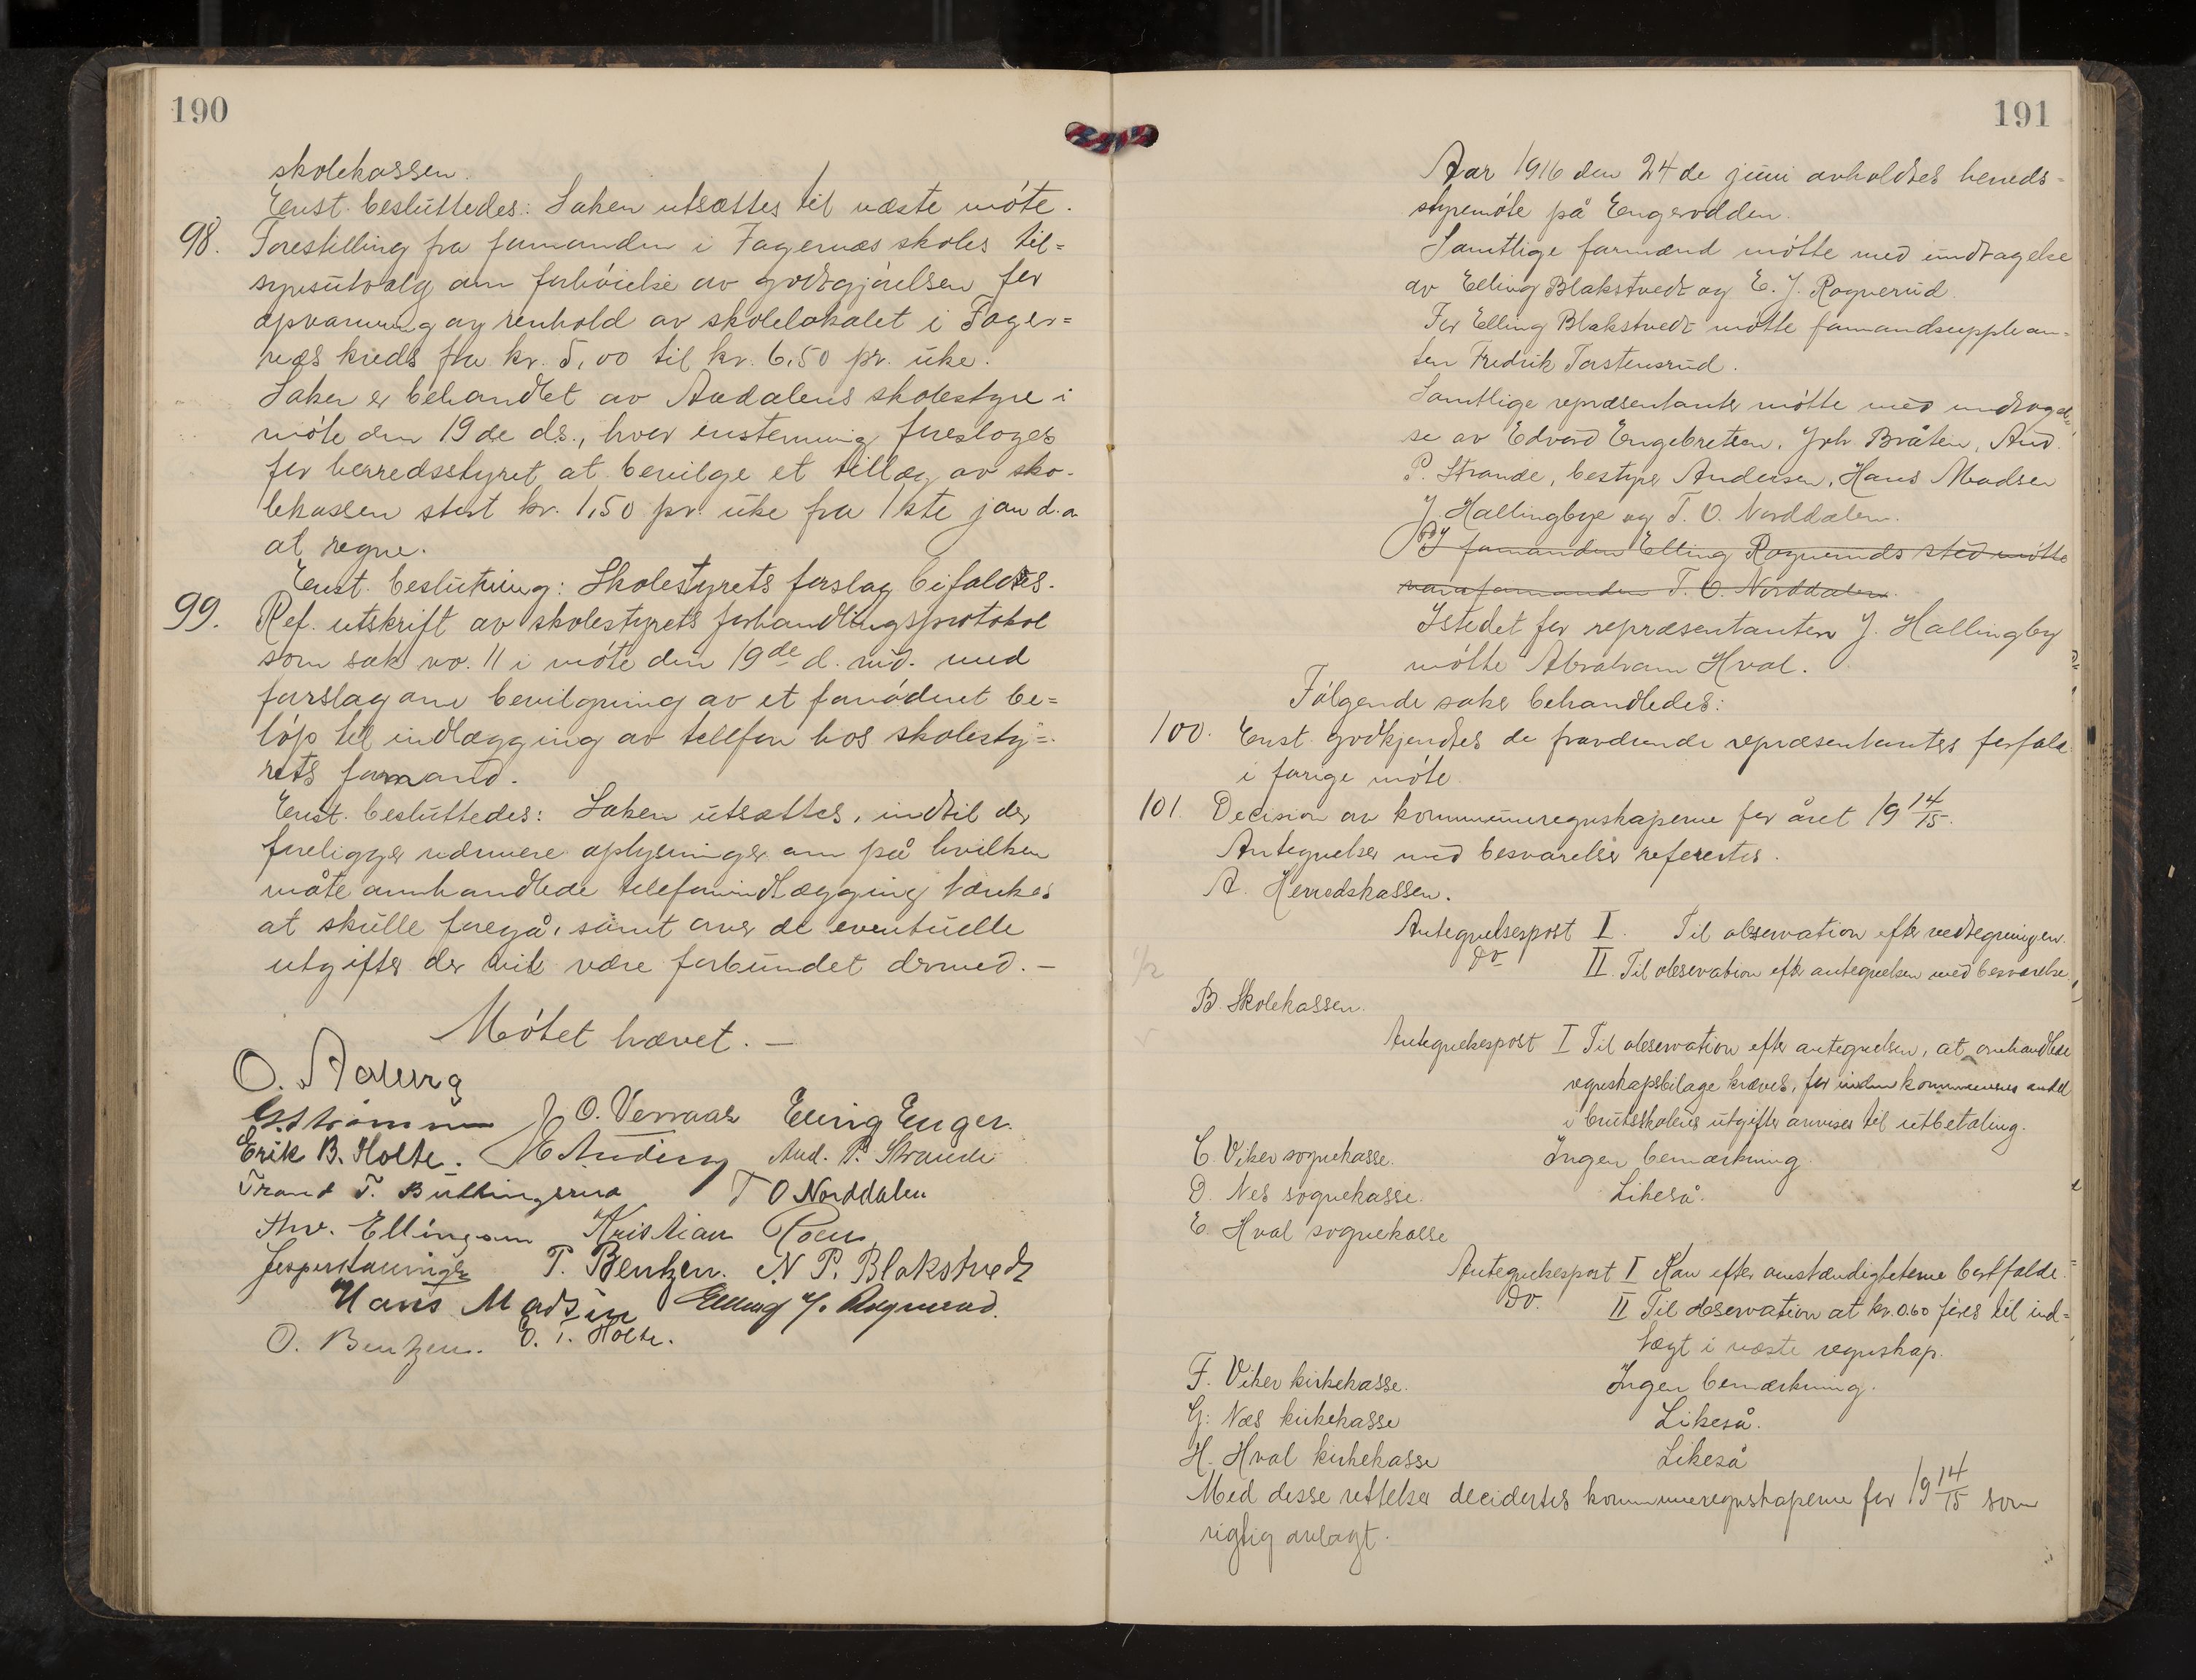 190
skolekassen.
Enst. besluttedes: Saken utsættes til næste møte.
98. Forestilling fra formanden i Fagernæs skoles til=
synsutvalg om forhøielse av godtgjørelsen for
opvarming og renhold av skolelokalet i Fager=
næs kreds fra kr. 5,00 til kr. 6,50 pr. uke.
Saken er behandlet av Aadalens skolestyre i
møte den 19de ds., hvor enstemmig foresloges
for herredsstyret at bevilge et tillæg av sko-
lekassen stort kr. 1,50 pr. uke fra 1ste jan d.a
at regne.
Enst. beslutning: Skolestyrets forslag bifaldtes.
99. Ref. utskrift av skolestyrets forhandlingsprotokol
som sak no. 11 i møte den 19de d. md. med
forslag om bevilgning av et fornødent be=
løp til indlægging av tellfon hos skolesty=
rets formand.
Enst. besluttedes: Saken utsættes, indtil der
foreligger nærmere oplysninger om på hvilken
måte omhandlede telefonindlægging tænkes
at skulle foregå, samt over de eventuelle
utgifter der vil være forbundet dermed. –
Møtet hævet. –
O. Aaberg
G. Strømmen J. O. Verraas Elling Enger.
Erik B. Holte. Andersen And. P. Strande
Trond T. Buttingsrud T O Norddalen
Thv. Ellingsen Kristian Roen
Jesper P. Bentzen. N. P. Blakstvedt
Hans Madsen Elling J. Rognerud.
O. Bentzen. O. T. Holte.
191
Aar 1916 den 24de juni avholdtes herreds-
styremøte på Engerodden.
Samtlige formænd møtte med undtagelse
av Elling Blakstvedt og E. J. Rognerud.
For Elling Blakstvedt møtte formandssupplean-
ten Fredrik Torstensrud.
Samtlige repræsentanter møtte med undtagel-
se av Edvard Engebretsen, Joh. Bråten, And.
P. Strande, bestyrer Andersen, Hans Madsen
J. Hallingbye og T. O. Norddalen.
I formanden Elling Rogneruds sted møtte
varaformanden T. O. Norddalen.
Istedet for repræsentanten J. Hallingby
møtte Abraham Hval.
Følgende saker behandledes:
100. Enst. godkjendtes de fraværende repræsentanters forfald
i forige møte.
101. Decision av kommuneregnskaperne for året 19 14/15.
Antegnelser med besvarelser refereertes.
A. Herredskassen.
Antegnelsespost I. Til observation efter vedtegningen.
Do II. Til observation efter antegnelsen med besvarelse
B. Skolekassen.
Antegnelsespost I Til observation efter antegnelsen, at omhandlede
regnskapsbilage kræves, før kommunens andel
i brutskolens utgifter anvises til utbetaling.
C. Viker sognekasse. Ingen bemærkning.
D. Nes sognekasse. Likeså.
E. Hval sognekasse
Antegnelsespost I Kan efter omstændigheterne bortfalde.
Do. II Til observation at kr. 0.60 føres til ind-
tægt i næste regnskap.
F. Viker kirkekasse. Ingen bemærkning.
G. Næs kirkekasse Likeså.
H. Hval kirkekasse Likeså
Med disse rettelser decidertes kommuneregnskaperne for 19 14/15 som
rigtig avlagt.